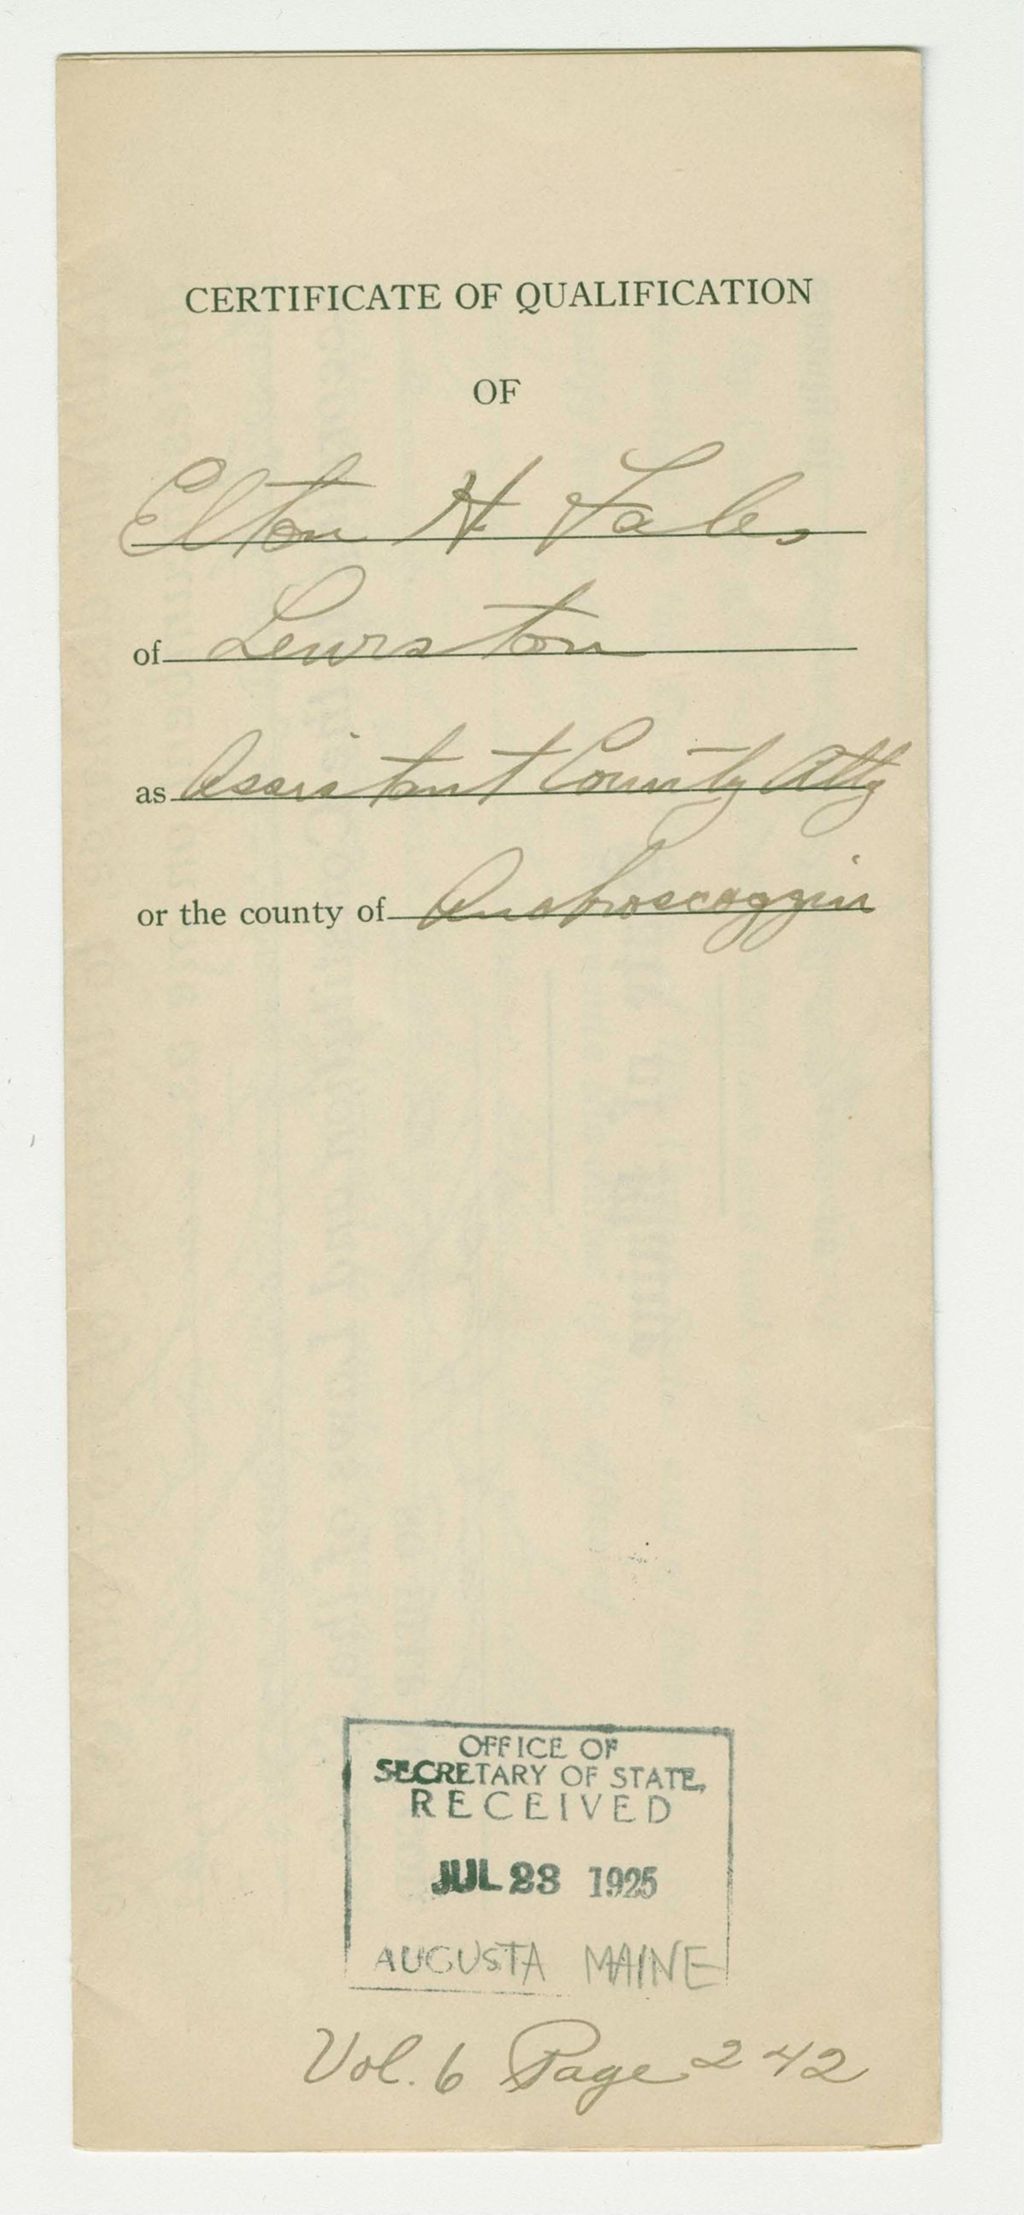 CERTIFICATE OF QUALIFICATION
OF
Elton H Fales
of Lewiston
as Assistant County Atty
or the county of Androscoggin
OFFICE OF
SECRETARY OF STATE,
RECEIVED
JUL 23 1925
AUGUSTA MAINE
Vol. 6 Page 242